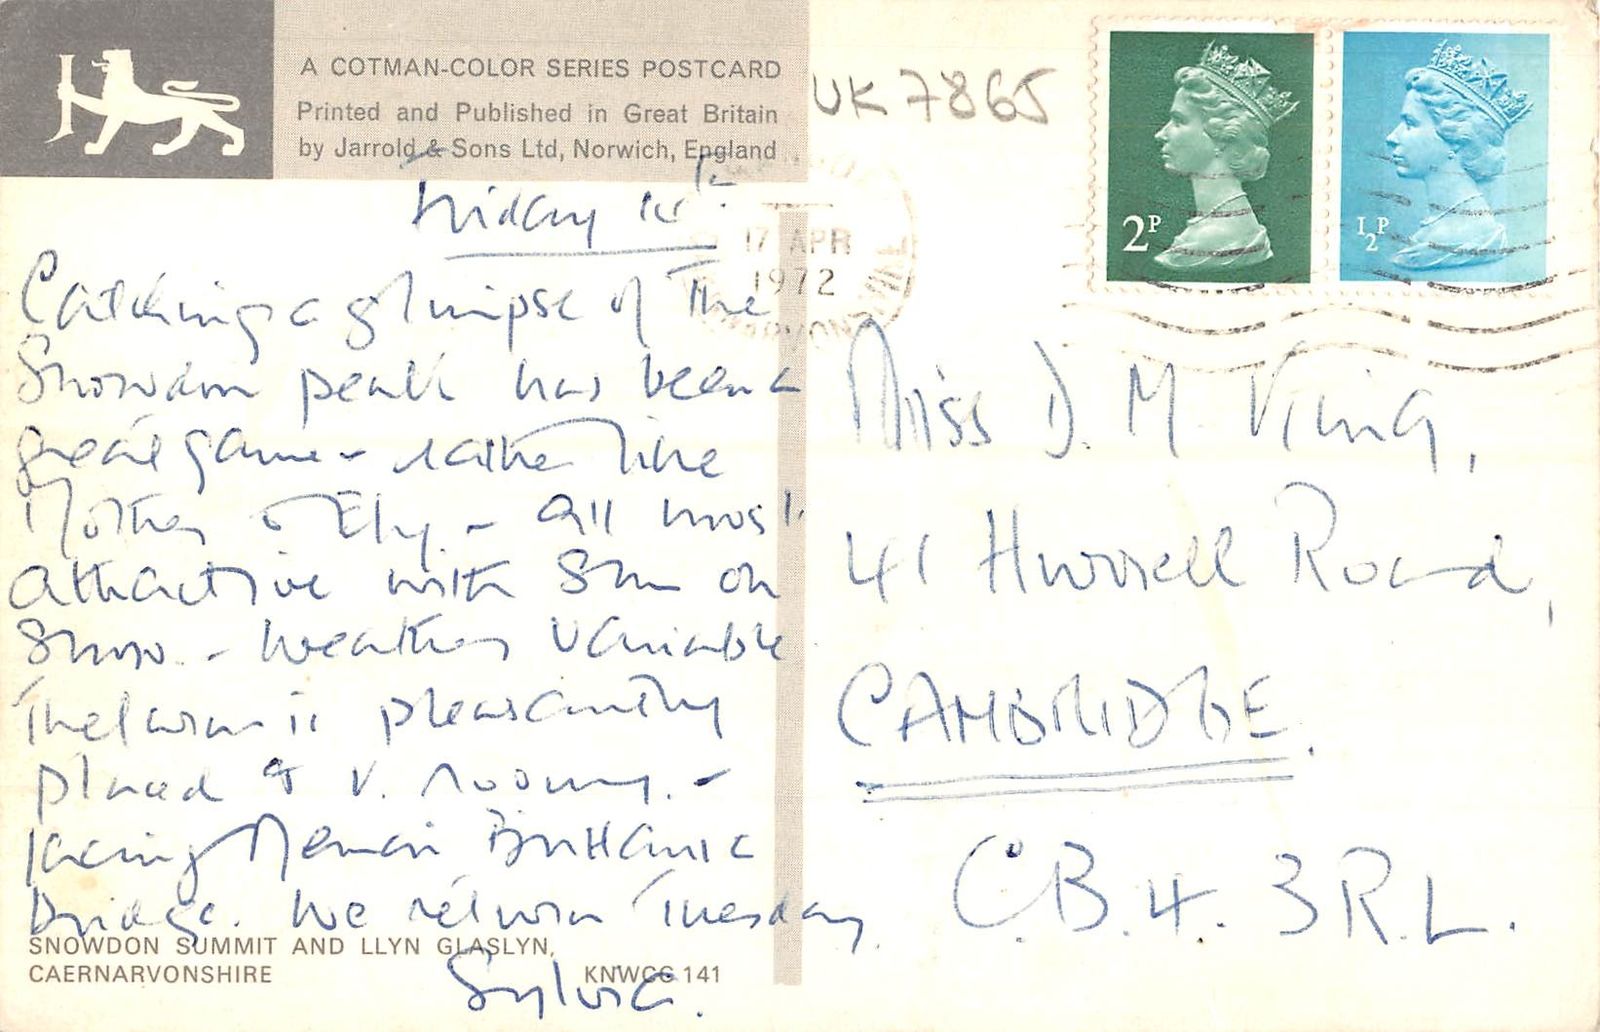 A COTMAN-COLOR SERIES POSTCARD
Printed and Published in Great Britain
by Jarrold & Sons Ltd, Norwich, England
UK 7865
2P
½P
17 APR
1972
Friday 14th.
Catching a glimpse of the
Snowdon peak has been a
great game - rather like
Mother & Ely. - All most
attractive with Sun on
Snow. - Weather variable
The is pleasantly
placed & v. roomy. -
facing Menai Brittania
bridge. We return Tuesday.
Sylvia.
Miss D. M. King,
41 Hurrell Road,
CAMBRIDGE.
C.B.4. 3R.L.
SNOWDON SUMMIT AND LLYN GLASLYN,
CAERNARVONSHIRE
KNWCC 141